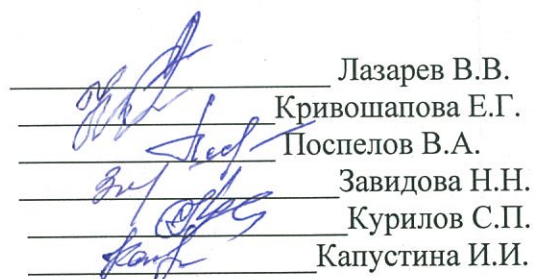 Лазарев В.В.
Кривошапова Е.Г.
Поспелов В.А.
Завидова Н.Н.
Курилов С.П.
Капустина И.И.